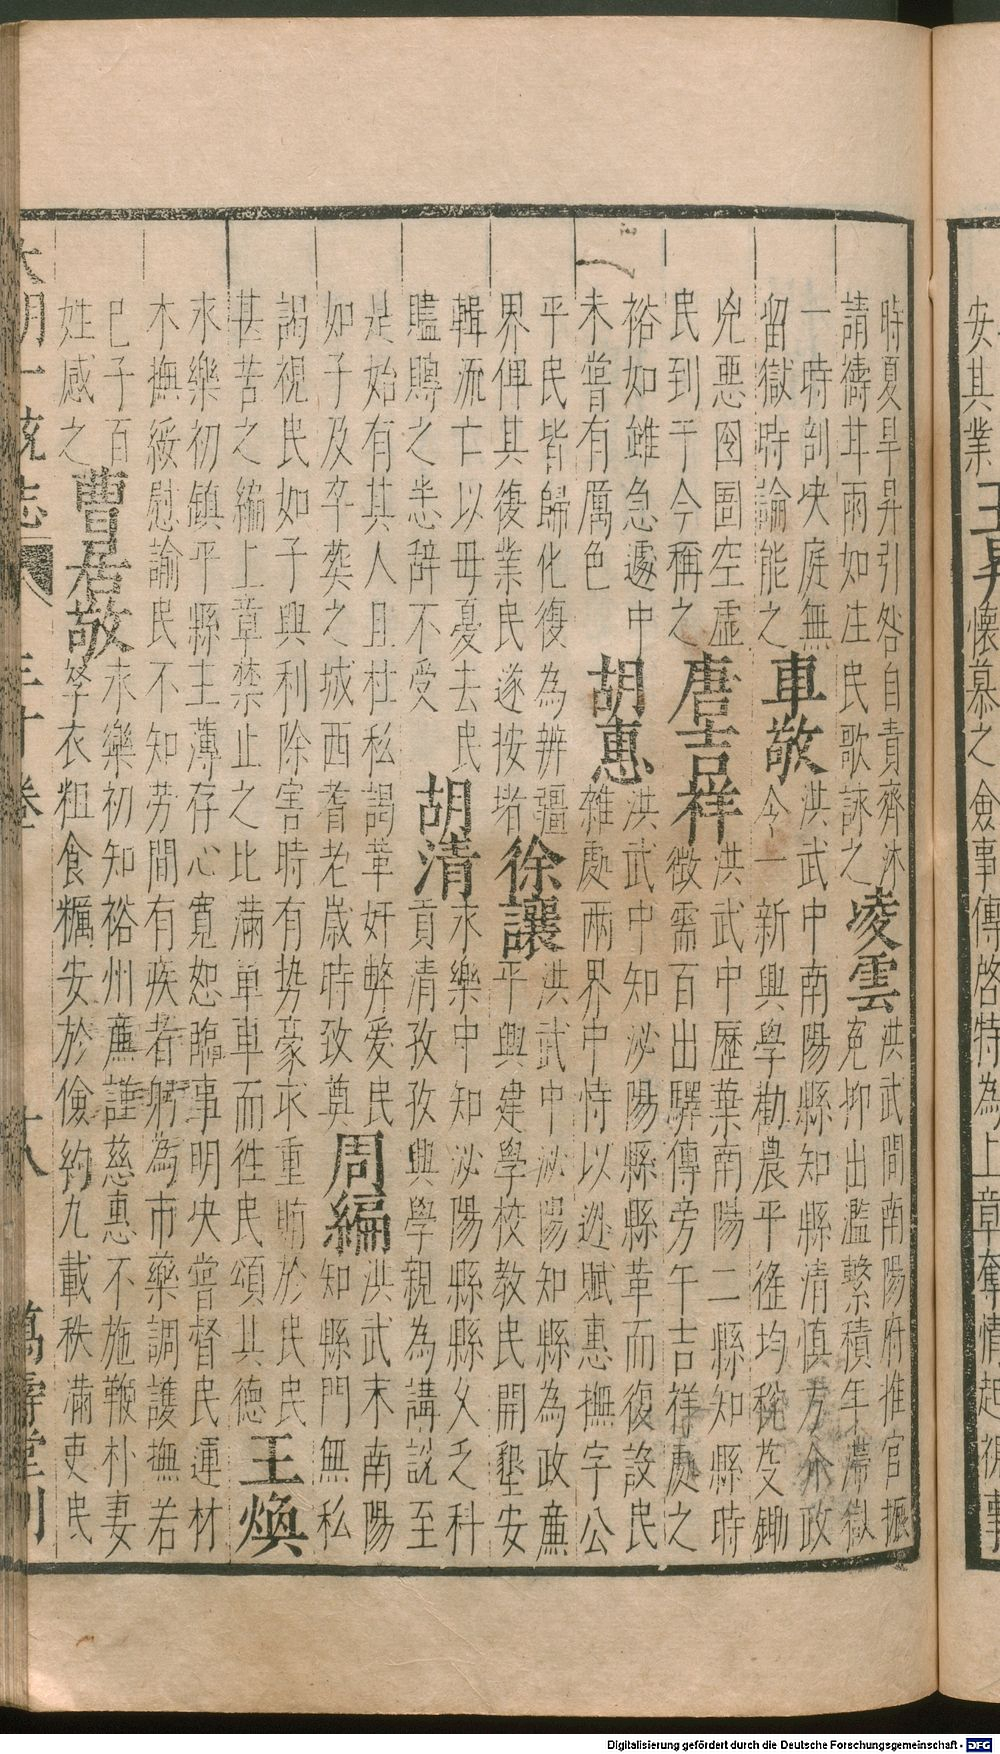 安其業
王昇
懷慕之僉事傳啓特為上章奪情起視事
時夏旱昇引咎自責齊沐
請禱甘雨如注民歌詠之
凌雲
洪武間南陽府推官振
冤抑出濫繫積年滯獄
一時剖决庭無
留獄時論能之
車敬
洪武中南陽縣知縣清慎方介政
令一新興學勸農平徭均稅芟鋤
兇惡囹圄空虛
民到于今稱之
唐吉祥
洪武中歷葉南陽二縣知縣時
徵需百出驛傳旁午吉祥處之
裕如雖急遽中
未嘗有厲色
胡惠
洪武中知泌陽縣縣革而復設民
雜處兩界中恃以逃賦惠撫字公
平民皆歸化復為辨疆
界俾其復業民遂按堵
徐讓
洪武中泌陽知縣為政廉
平興建學校教民開墾安
輯流亡以母憂去民
贐賻之悉辭不受
胡清
永樂中知泌陽縣縣久乏科
貢清孜孜興學親為講説至
是始有其人且杜私謁革奸弊愛民
如子及卒葬之城西耆老歲時致奠
周編
洪武末南陽
知縣門無私
謁視民如子興利除害時有势豪求重賄於民民
甚苦之編上章禁止之比滿單車而徃民頌其德
王煥
永樂初鎮平縣主薄存心寬恕臨事明决嘗督民運材
木撫綏慰諭民不知劳間有疾者躬為市藥調護撫若
已子百
姓感之
曹居敬
永樂初知裕州廉謹慈惠不施鞭朴妻
孥衣粗食糲安於儉約九載秩滿吏民
大明一統志 三十卷 十八 萬壽堂刊
Digitalisierung gefördert durch die Deutsche Forschungsgemeinschaft - DFG